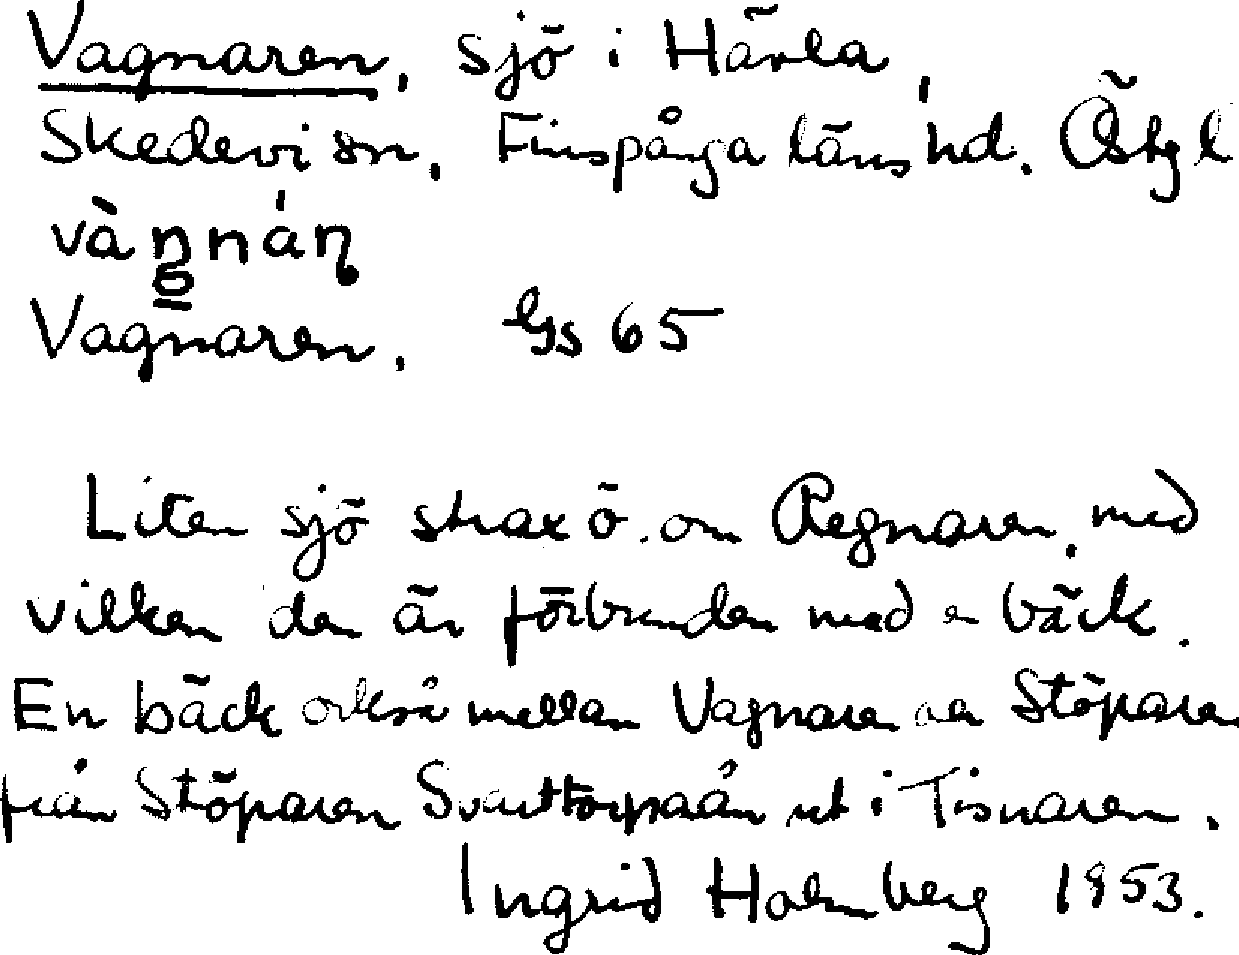 Vagnaren, sjö i Hävla,
Skedevi sn, Finspånga läns hd. Östgl
vàŋnáɳ
Vagnaren. Gs 65
Liten sjö strax ö. om Regnaren, med
vilken den är förbunden med en bäck.
En bäck också mellan Vagnaren och Stöparen
från Stöparen Svarttorpaån ut i Tisnaren.
Ingrid Holmberg 1953.